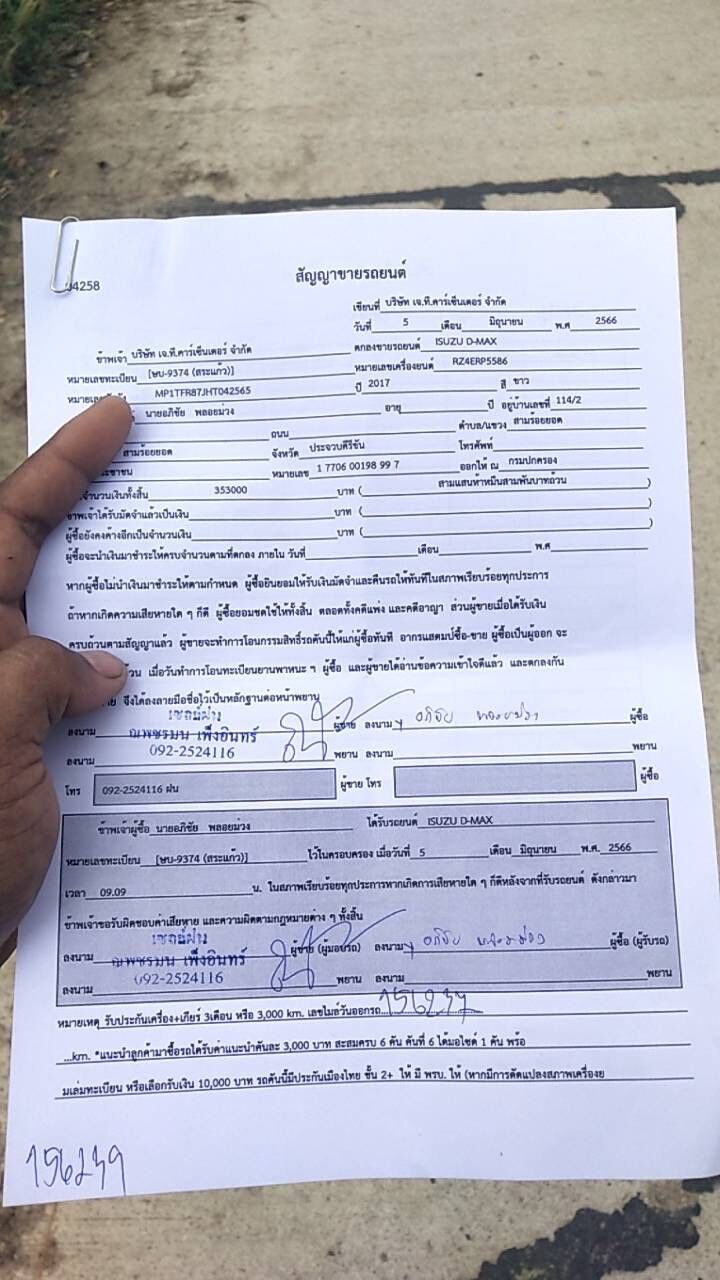 04258
สัญญาขายรถยนต์
เขียนที่ บริษัท เจ.ที.คาร์เซ็นเตอร์ จำกัด
วันที่ 5 เดือน มิถุนายน พ.ศ 2566
ข้าพเจ้า บริษัท เจ.ที.คาร์เซ็นเตอร์ จำกัด ตกลงขายรถยนต์ ISUZU D-MAX
หมายเลขทะเบียน [ษบ-9374 (สระแก้ว)] หมายเลขเครื่องยนต์ RZ4ERP5586
หมายเลข MP1TFR87JHT042565 ปี 2017 สี ขาว
นายอภิชัย พลอยม่วง อายุ ปี อยู่บ้านเลขที่ 114/2
ถนน ตำบล/แขวง สามร้อยยอด
สามร้อยยอด จังหวัด ประจวบคีรีขัน โทรศัพท์
ประชาชน หมายเลข 1 7706 00198 99 7 ออกให้ ณ กรมปกครอง
จำนวนเงินทั้งสิ้น 353000 บาท ( สามแสนห้าหมื่นสามพันบาทถ้วน )
ข้าพเจ้าได้รับมัดจำแล้วเป็นเงิน บาท ( )
ผู้ซื้อยังคงค้างอีกเป็นจำนวนเงิน บาท ( )
ผู้ซื้อจะนำเงินมาชำระให้ครบจำนวนตามที่ตกลง ภายใน วันที่ เดือน พ.ศ.
หากผู้ซื้อไม่นำเงินมาชำระให้ตามกำหนด ผู้ซื้อยินยอมให้ริบเงินมัดจำและคืนรถให้ทันทีในสภาพเรียบร้อยทุกประการ
ถ้าหากเกิดความเสียหายใด ๆ ก็ดี ผู้ซื้อยอมชดใช้ให้ทั้งสิ้น ตลอดทั้งคดีแพ่ง และคดีอาญา ส่วนผู้ขายเมื่อได้รับเงิน
ครบถ้วนตามสัญญาแล้ว ผู้ขายจะทำการโอนกรรมสิทธิ์รถคันนี้ให้แก่ผู้ซื้อทันที อากรแสตมป์ซื้อ-ขาย ผู้ซื้อเป็นผู้ออก จะ
เมื่อวันทำการโอนทะเบียนยานพาหนะ ฯ ผู้ซื้อ และผู้ขายได้อ่านข้อความเข้าใจดีแล้ว และตกลงกัน
จึงได้ลงลายมือชื่อไว้เป็นหลักฐานต่อหน้าพยาน
เซลล์ฝน
ลงนาม ณพชรมน เพ็งอินทร์ ผู้ขาย ลงนาม อภิชัย พลอยม่วง ผู้ซื้อ
ลงนาม 092-2524116 พยาน ลงนาม พยาน
โทร 092-2524116 ฝน ผู้ขาย โทร ผู้ซื้อ
ข้าพเจ้าผู้ซื้อ นายอภิชัย พลอยม่วง ได้รับรถยนต์ ISUZU D-MAX
หมายเลขทะเบียน [ษบ-9374 (สระแก้ว)] ไว้ในครอบครอง เมื่อวันที่ 5 เดือน มิถุนายน พ.ศ. 2566
เวลา 09.09 น. ในสภาพเรียบร้อยทุกประการหากเกิดการเสียหายใด ๆ ก็ดีหลังจากที่รับรถยนต์ ดังกล่าวมา
ข้าพเจ้าขอรับผิดชอบค่าเสียหาย และความผิดตามกฎหมายต่าง ๆ ทั้งสิ้น
เซลล์ฝน
ลงนาม ณพชรมน เพ็งอินทร์ ผู้ขาย (ผู้มอบรถ) ลงนาม อภิชัย พลอยม่วง ผู้ซื้อ (ผู้รับรถ)
ลงนาม 092-2524116 พยาน ลงนาม พยาน
หมายเหตุ รับประกันเครื่อง+เกียร์ 3เดือน หรือ 3,000 km. เลขไมล์วันออกรถ 156237
...km. *แนะนำลูกค้ามาซื้อรถได้รับค่าแนะนำคันละ 3,000 บาท สะสมครบ 6 คัน คันที่ 6 ได้มอไซด์ 1 คัน พร้อ
มเล่มทะเบียน หรือเลือกรับเงิน 10,000 บาท รถคันนี้มีประกันเมืองไทย ชั้น 2+ ให้ มี พรบ. ให้ (หากมีการดัดแปลงสภาพเครื่องย
156239